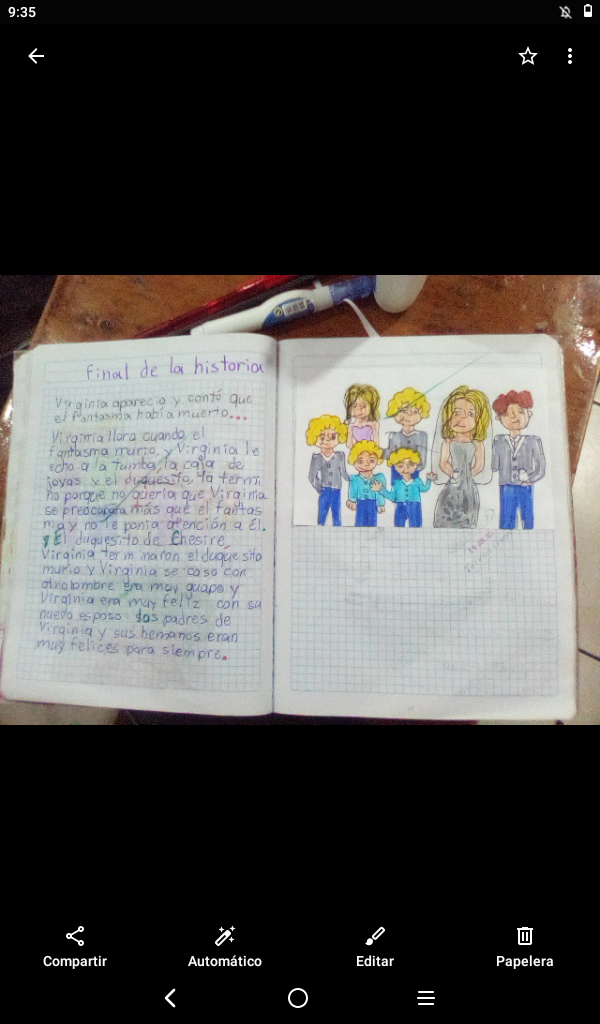 9:35
Final de la historia
Virginia aparecio y contó que
el fantasma había muerto...
Virginia llora cuando el
fantasma murio, y Virginia le
echo a la tumba, la caja de
joyas y el duquesito, la termi
no porque no quería que Virginia
se preocupara más que el fantas
ma y no le ponia atención a él.
y El duquesito de Chesire,
Virginia terminaron el duquesito
murio y Virginia se caso con
otro hombre era muy guapo y
Virginia era muy feliz con su
nuevo esposo los padres de
Virginia y sus hemanos eran
muy felices para siempre.
Compartir
Automático
Editar
Papelera